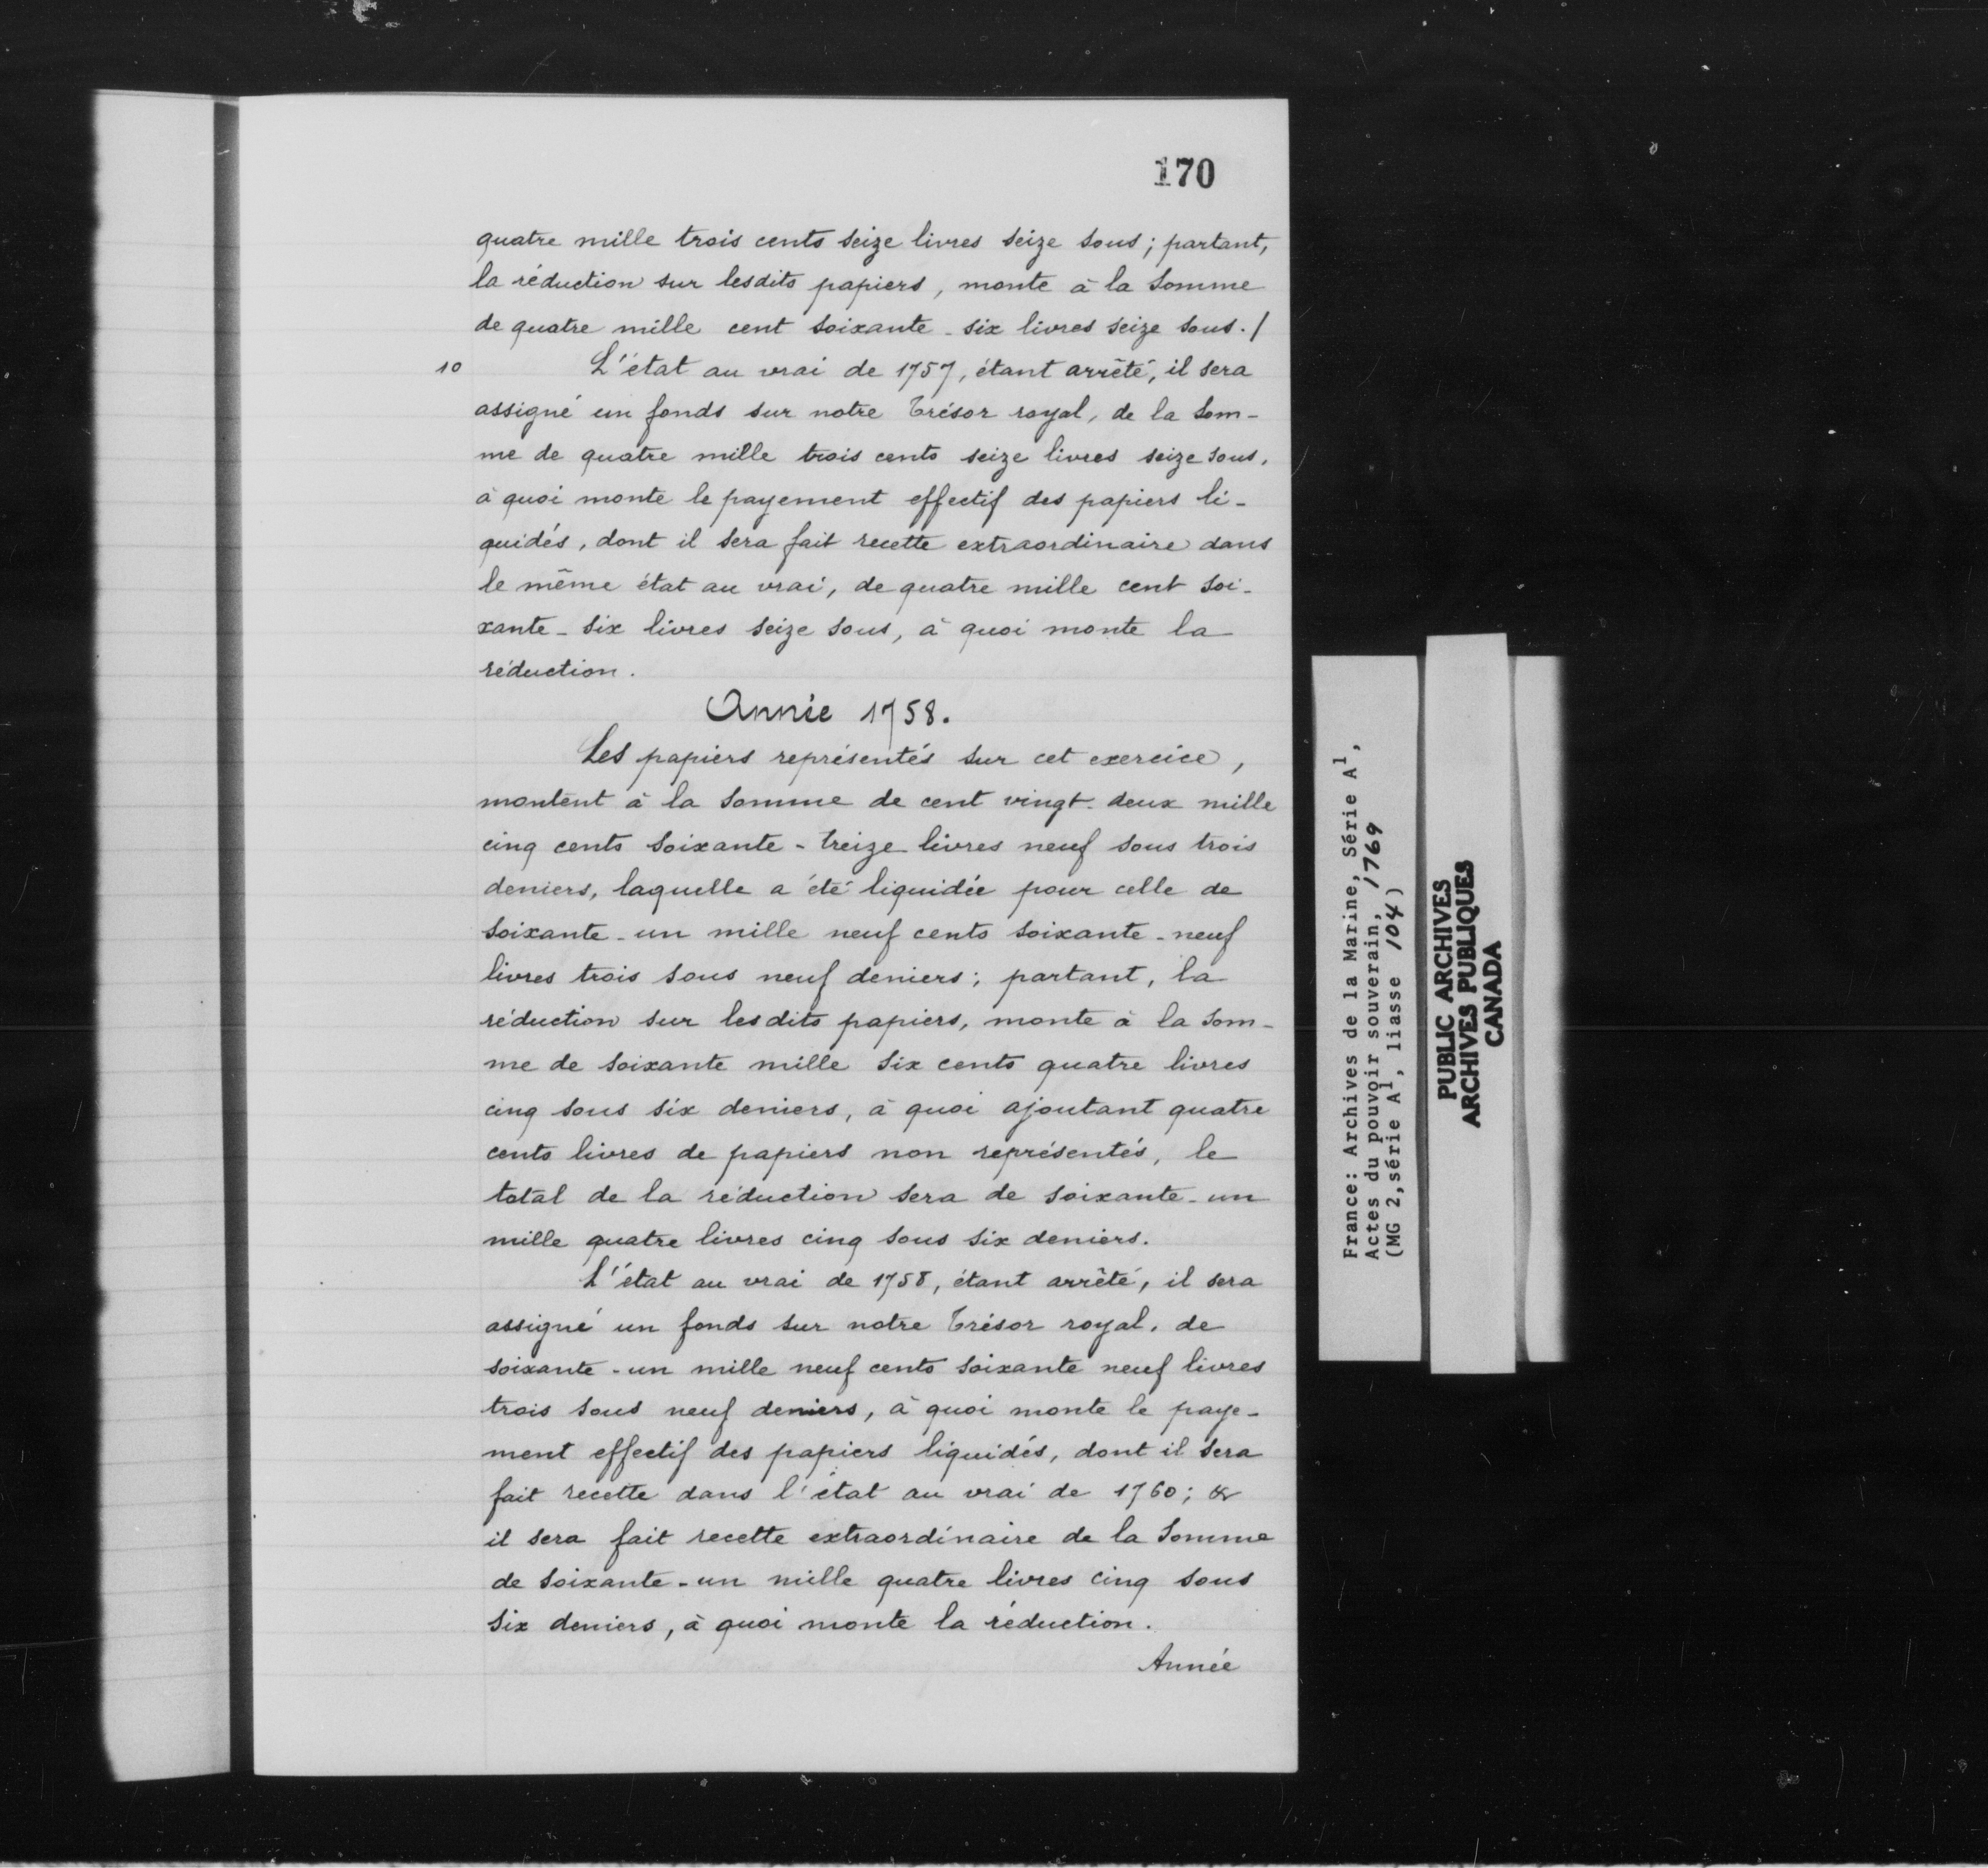 170
quatre mille trois cents seize livres seize sous; partant,
la réduction sur lesdits papiers, monte à la somme
de quatre mille cent soixante-six livres seize sous./
10 L'état au vrai de 1757, étant arrêté, il sera
assigné un fonds sur notre Trésor royal, de la som-
me de quatre mille trois cents seize livres seize sous,
à quoi monte le payement effectif des papiers li-
quidés, dont il sera fait recette extraordinaire dans
le même état au vrai, de quatre mille cent soi-
xante-six livres seize sous, à quoi monte la
réduction.
Année 1758.
Les papiers représentés sur cet exercice,
montent à la somme de cent vingt-deux mille
cinq cents soixante-treize livres neuf sous trois
deniers, laquelle a été liquidée pour celle de
soixante-un mille neuf cents soixante-neuf
livres trois sous neuf deniers; partant, la
réduction sur lesdits papiers, monte à la som-
me de soixante mille six cents quatre livres
cinq sous six deniers, à quoi ajoutant quatre
cents livres de papiers non représentés, le
total de la réduction sera de soixante-un
mille quatre livres cinq sous six deniers.
L'état au vrai de 1758, étant arrêté, il sera
assigné un fonds sur notre Trésor royal, de
soixante-un mille neuf cents soixante neuf livres
trois sous neuf deniers, à quoi monte le paye-
ment effectif des papiers liquidés, dont il sera
fait recette dans l'état au vrai de 1760; &
il sera fait recette extraordinaire de la somme
de soixante-un mille quatre livres cinq sous
six deniers, à quoi monte la réduction.
Année
France: Archives de la Marine, Série A1,
Actes du pouvoir souverain, 1769
(MG 2, série A1, liasse 104)
PUBLIC ARCHIVES
ARCHIVES PUBLIQUES
CANADA